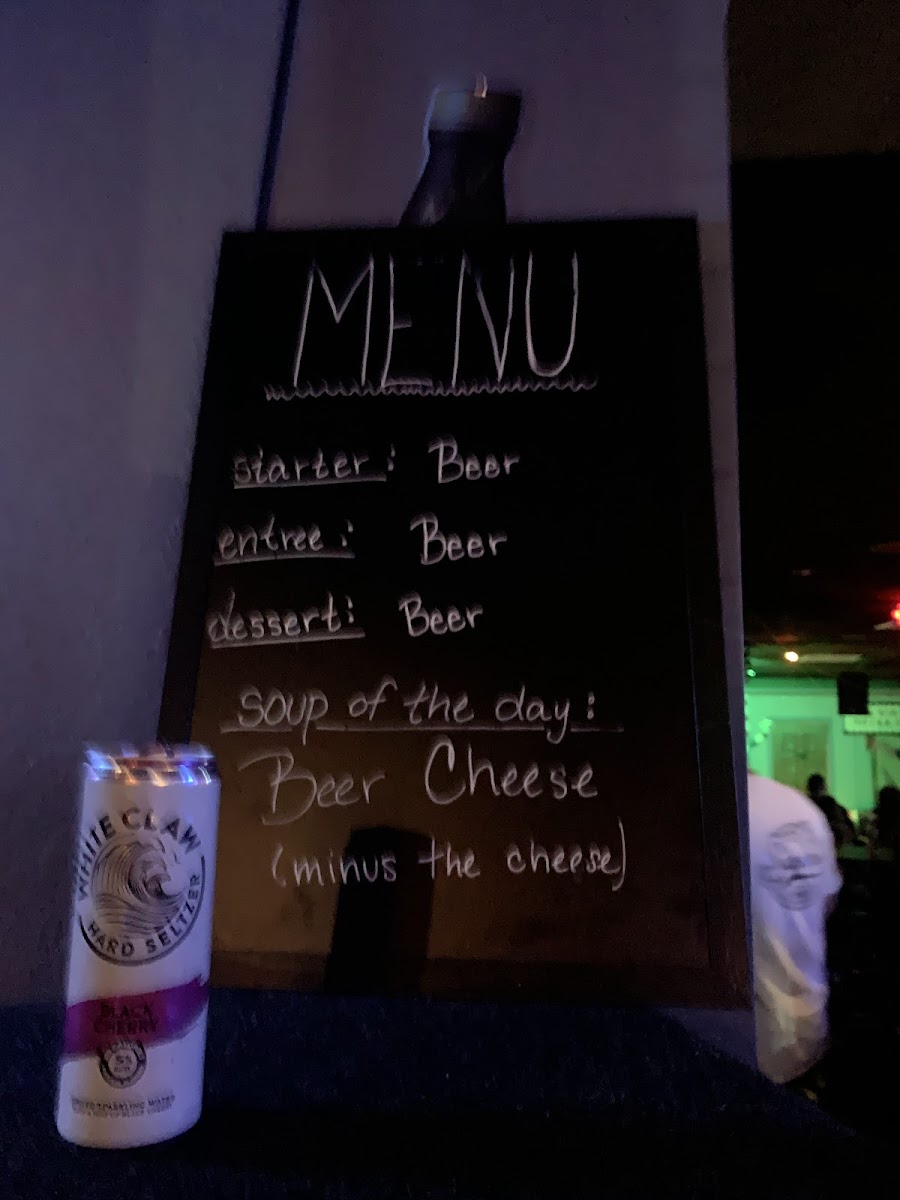 MENU
starter: Beer
entree: Beer
dessert: Beer
soup of the day:
Beer Cheese
(minus the cheese)
WHITE CLAW
HARD SELTZER
BLACK
CHERRY